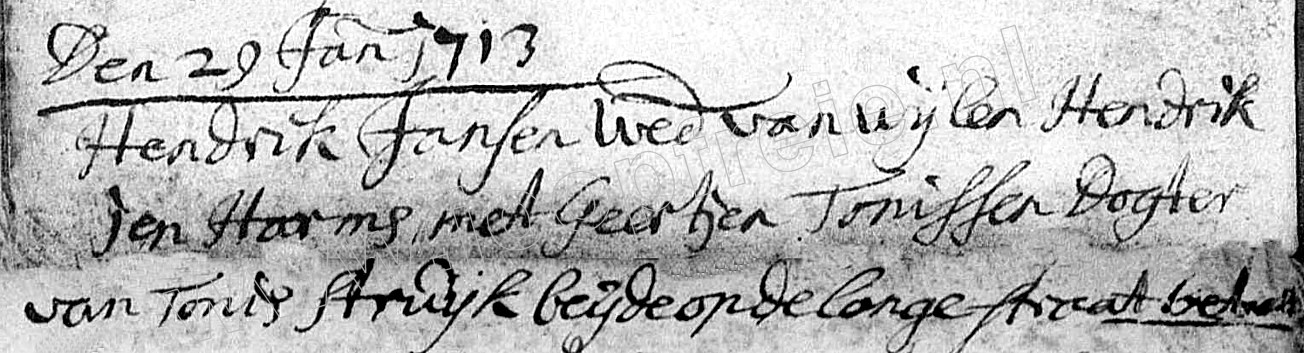 Den 29 Jan 1713
Hendrik Jansen Wed van wijlen Hendrik
jen Harms, met Geertjen Tonissen Dogter
van Tonis Struijk beijde op de lange straat